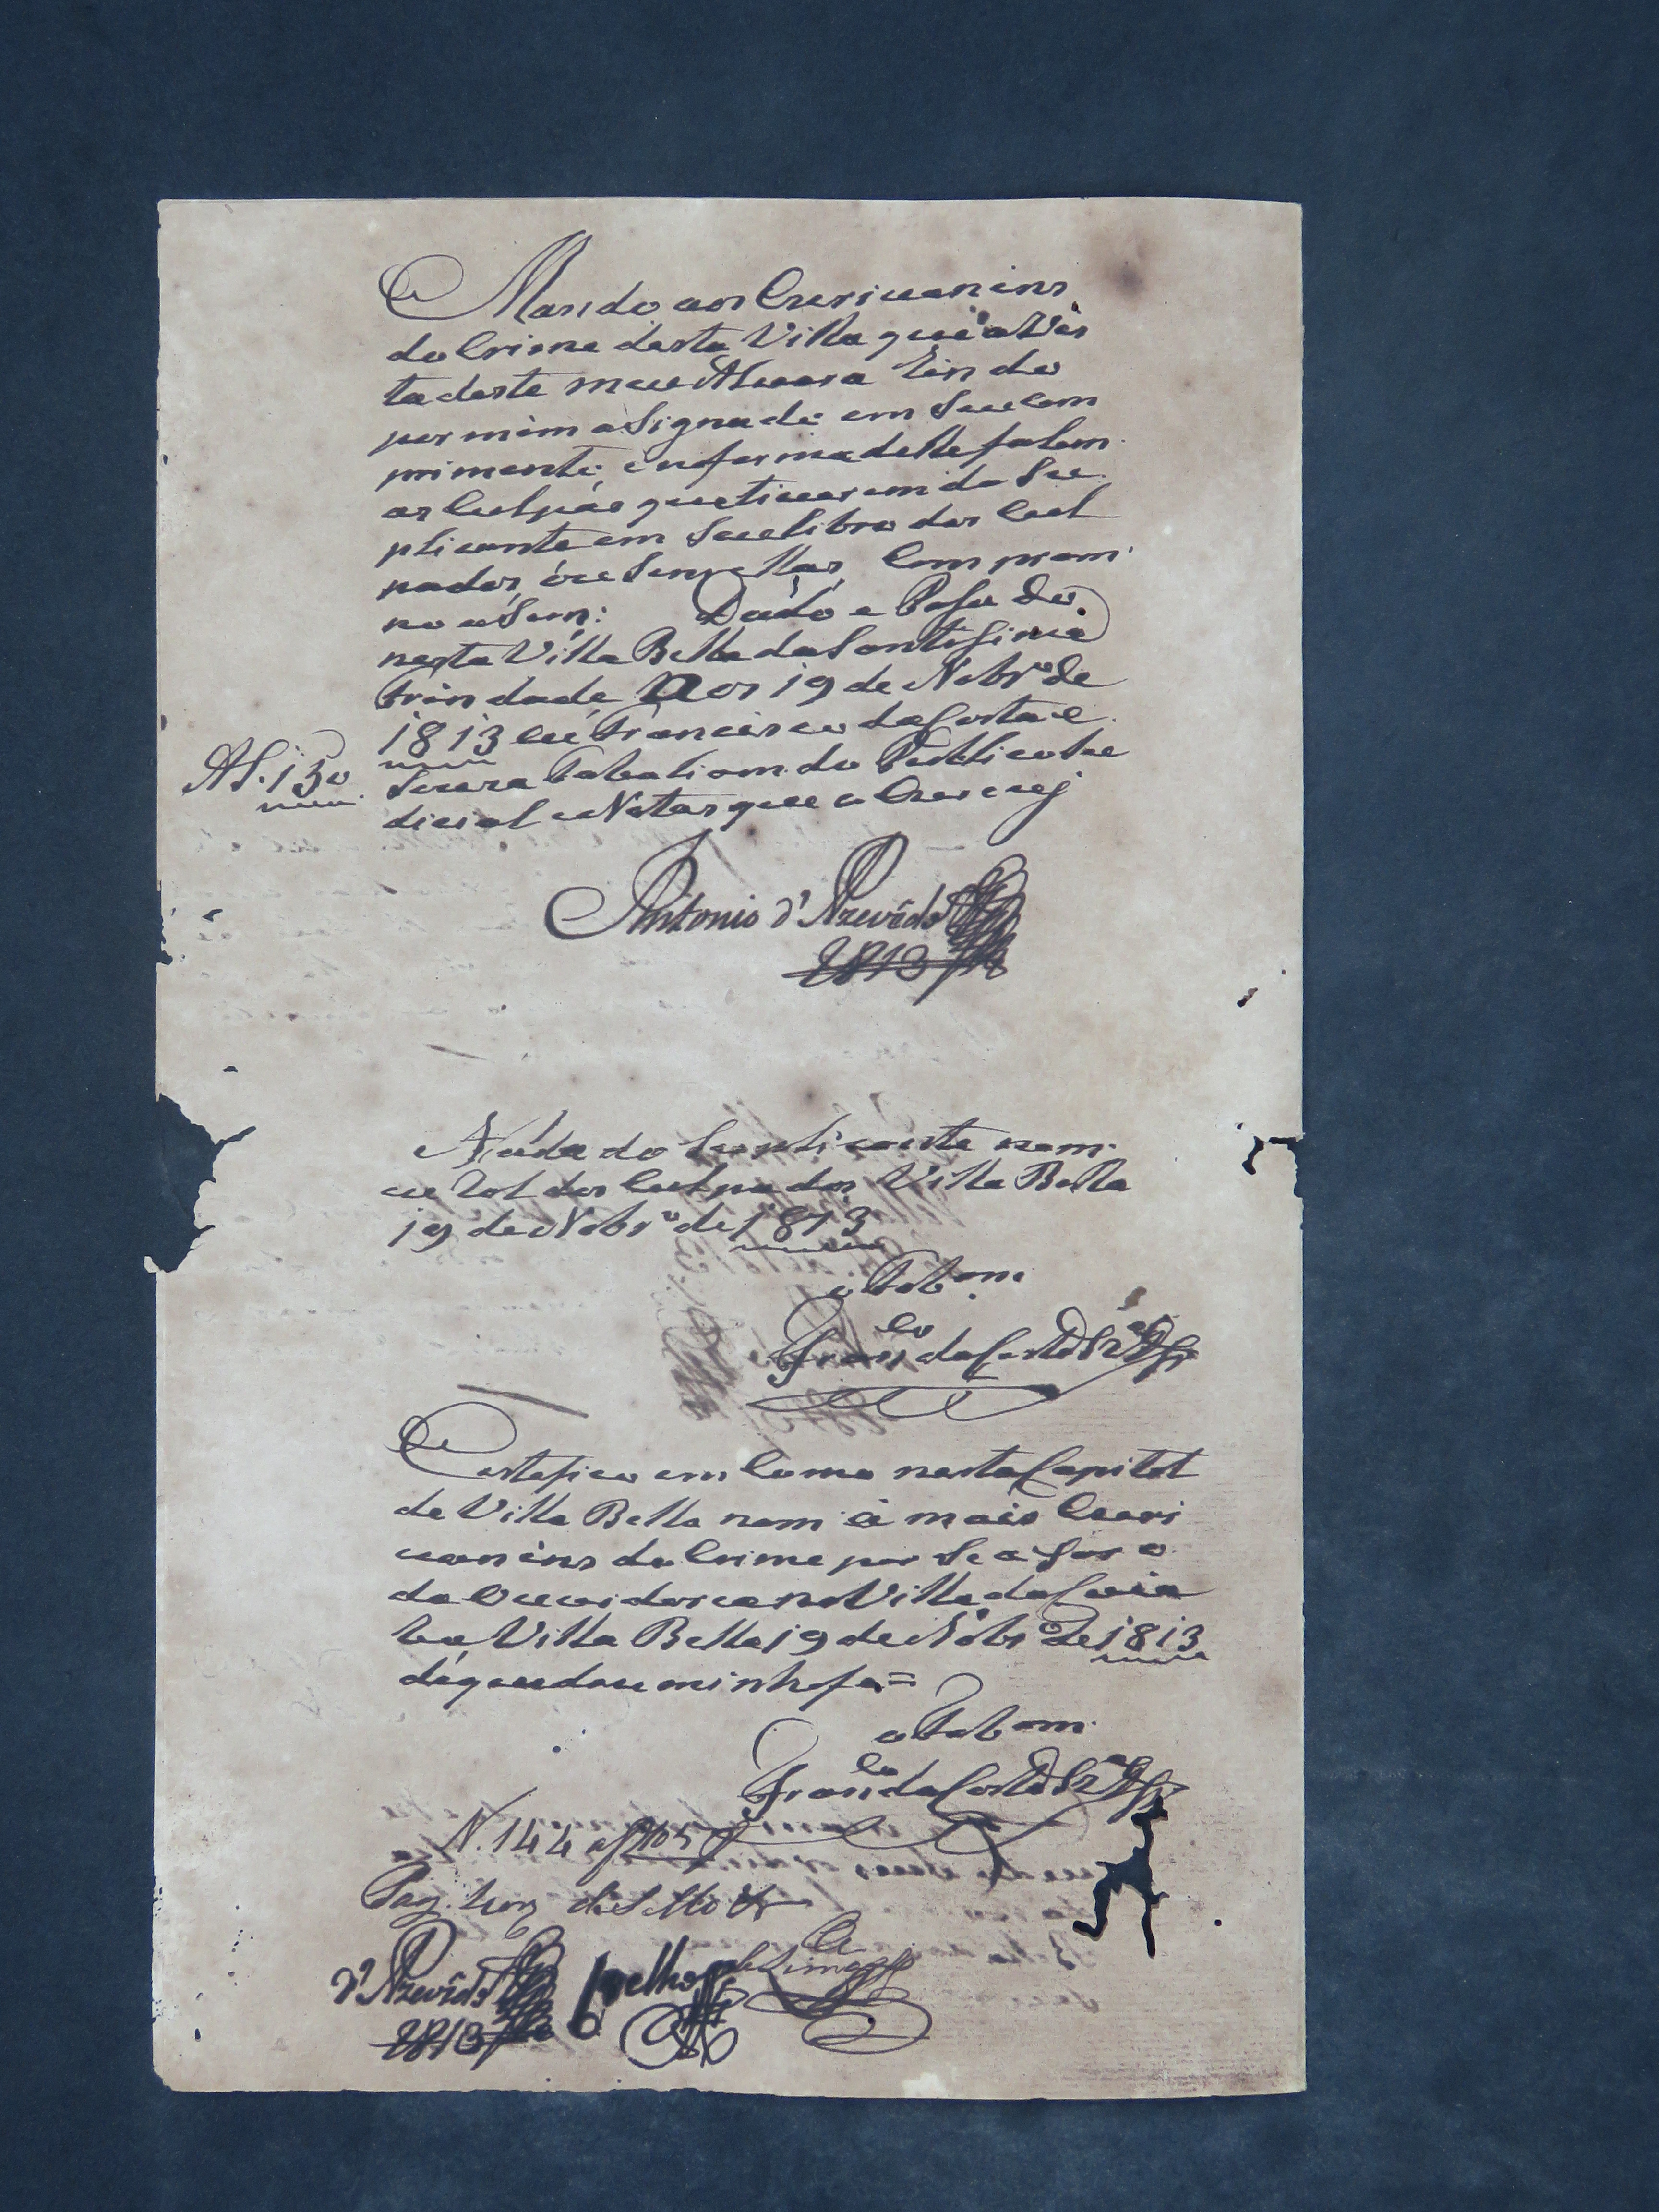 Mando aos Escrivaneins
do Crime desta Villa que a Vis
ta deste meu Alvara Sindo
por mim aSignado em Seu Com
primento, e em forma delle falem
as Culpas que tiverem do Su
plicante em Seu Libro dos Cul
pados, ou Sem ellas Com pram
no aSim: Dado e Pasado
nesta Villa Bella da Santisima
trindade Aos 19 de Nobr.º de
1813 eu Francisco da Costa e
AS. 150
Souza Tabaliam do Publico Ju
dicial e Notas que o Escrevj
Antonio d'Azevêdo
1813
Nada do Suplicante nem
eu Rol dos Culpados Villa Bella
19 de Nobr.º de 1813
o Tab.am
Fran.co da Costa e Sz.a
Certefico em Como nesta Capital
de Villa Bella nam á mais Escri
vaneins do Crime por Se achar o
da Ouvidoria na Villa do Cuia
ba Villa Bella 19 de Nobr.º de 1813
de que dou minha fe =
o Tab.am
Fran.co da Costa e Sz.a
N. 144
Pag. de Sello
d'Azevêdo Coelho Lima
1813